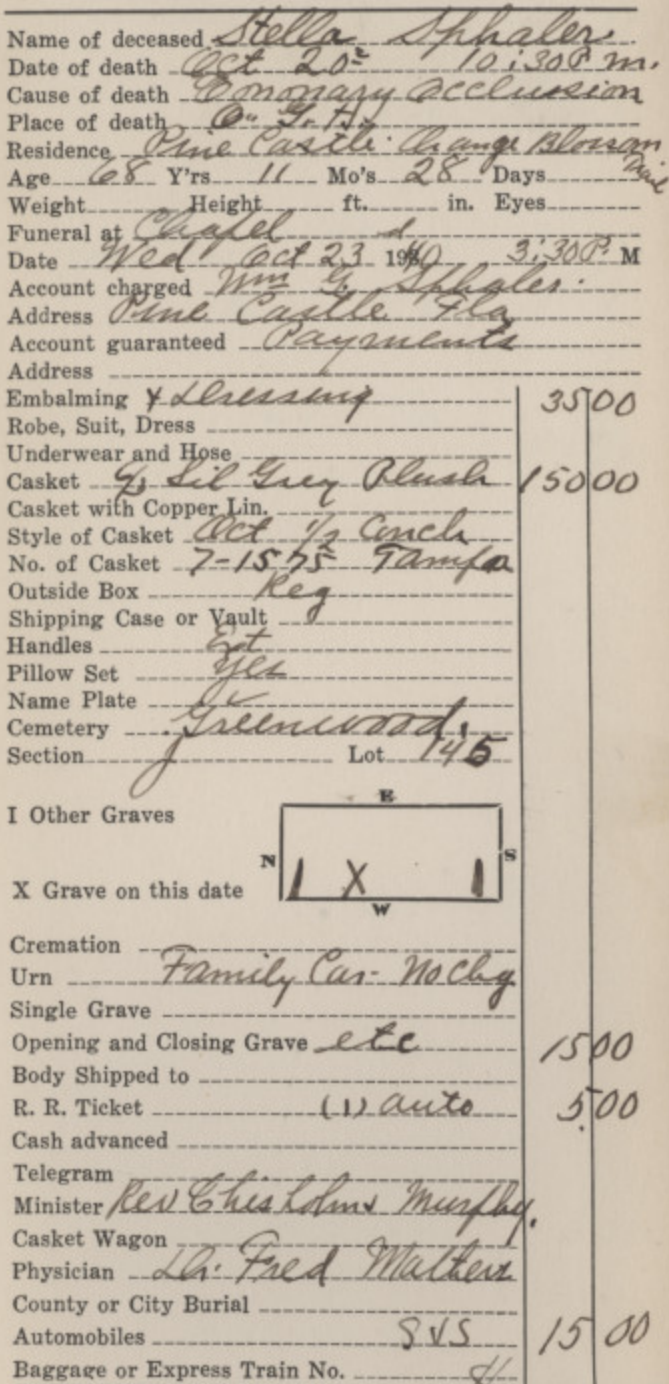 Name of deceased Stella Sphaler
Date of death Oct 20 10:30 P. m.
Cause of death Coronary Occlusion
Place of death O. G. H.
Residence Pine Castle Orange Blossom Trail
Age 68 Y'rs 11 Mo's 28 Days
Weight Height ft. in. Eyes
Funeral at Chapel
Date Wed Oct 23 1940 3:30 P. M
Account charged Wm G. Sphaler
Address Pine Castle Fla
Account guaranteed Payments
Address
Embalming & Dressing 35 00
Robe, Suit, Dress
Underwear and Hose
Casket Sil Grey Plush 150 00
Casket with Copper Lin.
Style of Casket Oct 1/2 Couch
No. of Casket 7-1575 Tampa
Outside Box Reg
Shipping Case or Vault
Handles Ext
Pillow Set Yes
Name Plate
Cemetery Greenwood.
Section J Lot 145
I Other Graves
E
N I X I S
X Grave on this date
W
Cremation
Urn Family Car- No Chg
Single Grave
Opening and Closing Grave etc 15 00
Body Shipped to
R. R. Ticket (1) auto 5 00
Cash advanced
Telegram
Minister Rev Chisholm & Murphy.
Casket Wagon
Physician Dr. Fred Mathers
County or City Burial
Automobiles S & S 15 00
Baggage or Express Train No.